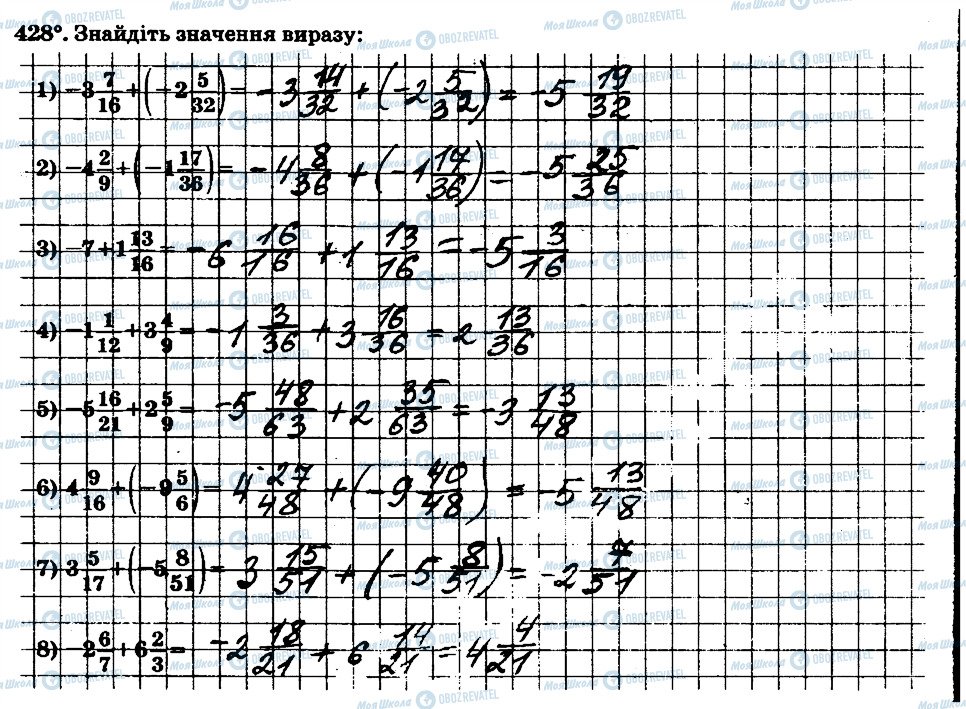 428°. Знайдіть значення виразу:
1) −3 7/16 + (−2 5/32) = −3 14/32 + (−2 5/32) = −5 19/32
2) −4 2/9 + (−1 17/36) = −4 8/36 + (−1 17/36) = −5 25/36
3) −7 + 1 13/16 = −6 16/16 + 1 13/16 = −5 3/16
4) −1 1/12 + 3 4/9 = −1 3/36 + 3 16/36 = 2 13/36
5) −5 16/21 + 2 5/9 = −5 48/63 + 2 35/63 = −3 13/48
6) 4 9/16 + (−9 5/6) = 4 27/48 + (−9 40/48) = −5 13/48
7) 3 5/17 + (−5 8/51) = 3 15/51 + (−5 8/51) = −2 7/51
8) −2 6/7 + 6 2/3 = −2 18/21 + 6 14/21 = 4 4/21
МояШкола OBOZREVATEL